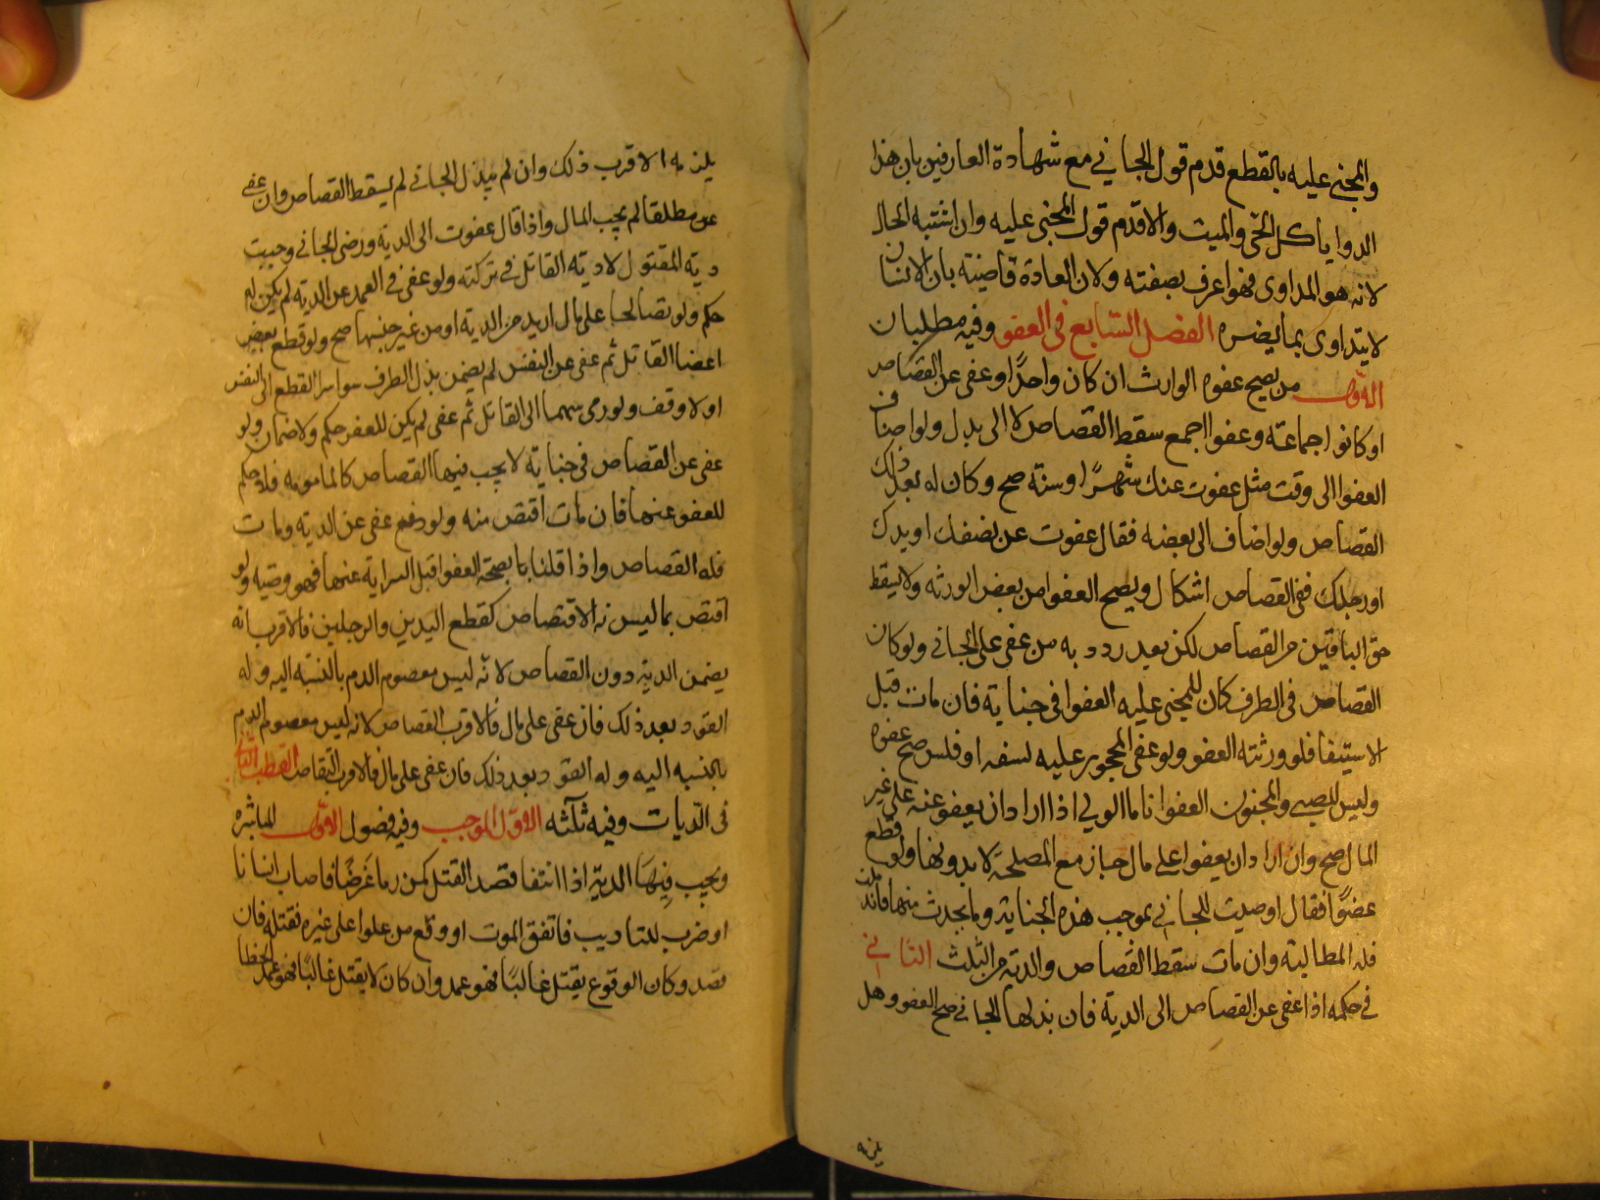 والمجني عليه بالقطع قدم قول الجاني مع شهادة العارفين بان هذا
الدوا ياكل الحي والميت والا قدم قول المجنى عليه وان اشتبه الحال
لانه هو المداوى فهو اعرف بصفته ولان العادة قاضيته بان الانسان
لا يتداوى بما يضره الفصل السابع في العفو وفيه مطلبان
الاول من يصح عفوه الوارث ان كان واحدًا وعفى عن القصاص
او كانوا جماعته وعفوا اجمع سقط القصاص لا الى بدل ولو اضاف
العفوا الى وقت مثل عفوت عنك شهرًا او سنته صح وكان له بعد ذلك
القصاص ولو اضاف الى بعضه فقال عفوت عن نصفك او يدك
او رجلك ففي القصاص اشكال ويصح العفوا من بعض الورثه ولا يسقط
حق الباقين من القصاص لكن بعد رد دية من عفى على الجاني ولو كان
القصاص في الطرف كان للمجنى عليه العفوا في جناية فان مات قبل
الاستيفا فلورثته العفو ولو عفى المحجور عليه لسفه او فلس صح عفوه
وليس للصبي والمجنون العفوا اما الولي اذا اراد ان يعفو عنه على غير
المال صح وان اراد ان يعفوا على مال جاز مع المصلحة لا بدونها ولو قطع
عضوًا فقال اوصيت للجاني بموجب هذه الجناية وما يحدث منها فاندملت
فله المطالبه وان مات سقط القصاص والديه من الثلث الثاني
في حكمه اذا عفى عن القصاص الى الدية فان بذلها الجاني صح العفو وهل
يلزمه
يلزمه الاقرب ذلك وان لم يبذل الجاني لم يسقط القصاص وان عفى
عن مطلقا لم يجب المال واذا قال عفوت الى الديه ورضى الجاني وجبت
دية المقتول لا دية القاتل في تركته ولو عفى في العمد عن الديه لم يكن له
حكم ولو تصالحا على مال ازيد من الديه او من غير جنسها صح ولو قطع بعض
اعضا القاتل ثم عفى عن النفس لم يضمن بدل الطرف سوا سرا القطع الى النفس
او لا وقف ولو رمى سهما الى القاتل ثم عفى لم يكن للعفو حكم ولا ضمان ولو
عفى عن القصاص في جناية لا يجب فيها القصاص كالمامومه فلا حكم
للعفو عنها فان مات اقتص منه ولو دفع عفى عن الديه ومات
فله القصاص واذا قلنا بما بصحة العفوا قبل السراية عنها فهو وصيه ولو
اقتص بما ليس له الاقتصاص كقطع اليدين والرجلين فالاقرب انه
يضمن الدية دون القصاص لانه ليس معصوم الدم بالنسبه اليه وله
القود بعد ذلك فان عفى على مال فالاقرب القصاص لانه ليس معصوم الدم
بالنسبه اليه وله القود بعد ذلك فان عفى على مال فالاقرب التقاص القطب الثالث
في الديات وفيه ثلثه الاول الموجب وفيه فصول الاول المباشره
ويجب فيها الدية اذا انتفا قصد القتل كمن رما غرضًا فاصاب انسانا
او ضرب للتاديب فاتفق الموت او وقع من علوا على غيره فقتله فان
قصد وكان الوقوع يقتل غالبًا فهو عمد وان كان لا يقتل غالبًا فهو عمد الخطا